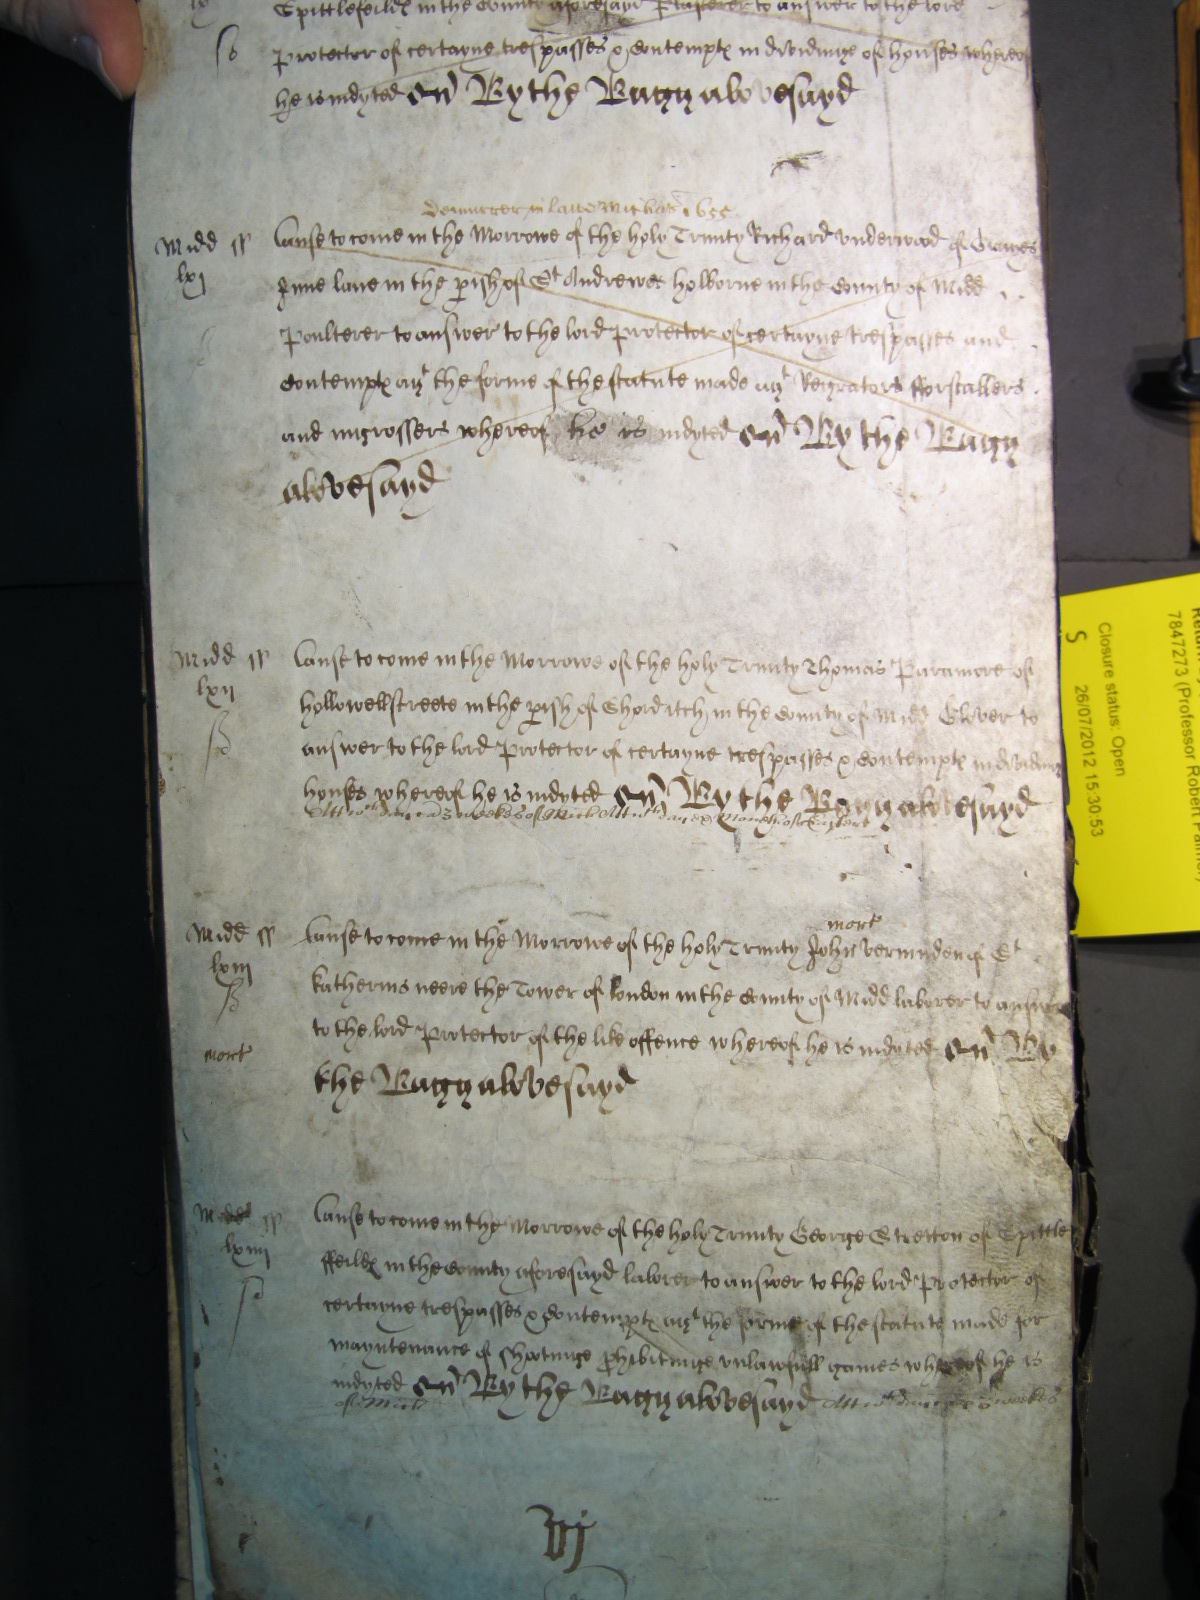 Spittlefeildℯ in the County aforesayd Plasterer to answer to the lord
Protector of certayne trespasses & Contemptℯ in dividinge of houses whereof
he is indyted By the Bagg abovesayd
Demurrer in Michas 1655
Midd ss Cause to come in the Morrowe of the holy Trinity Richard Underwood of Grayes
lxj Inne lane in the pish of St Andrewes holborne in the County of Midd
Poulterer to answer to the lord Protector of certayne trespasses and
Contemptℯ agt the forme of the statute made agt Regrators fforstallers
and ingrossers whereof he is indyted By the Bagg
abovesayd
Midd ss Cause to come in the Morrowe of the holy Trinity Thomas Paramore of
lxij hollowellstreete in the pish of Shorditch in the County of Midd Glover to
answer to the lord Protector of certayne trespasses & Contemptℯ in dividinge
houses whereof he is indyted By the Bagg abovesayd
weekes of Mich
mort
Midd ss Cause to come in the Morrowe of the holy Trinity John Vermuden of St
lxiij Katherins neere the Tower of london in the County of Midd laborer to answer
to the lord Protector of the like offence whereof he is indyted By
mort
the Bagg abovesayd
Midd ss Cause to come in the Morrowe of the holy Trinity George Stretton of Spittle
lxiiij ffeildℯ in the County aforesayd laborer to answer to the lord Protector of
certayne trespasses & Contemptℯ agt the forme of the statute made for
mayntenance of shootinge phibitinge unlawfull games whereof he is
indyted By the Bagg abovesayd weekes
of Mich
vij
Closure status: Open
S 26/07/2012 15:30:53
7847273 (Professor Robert Palmer)